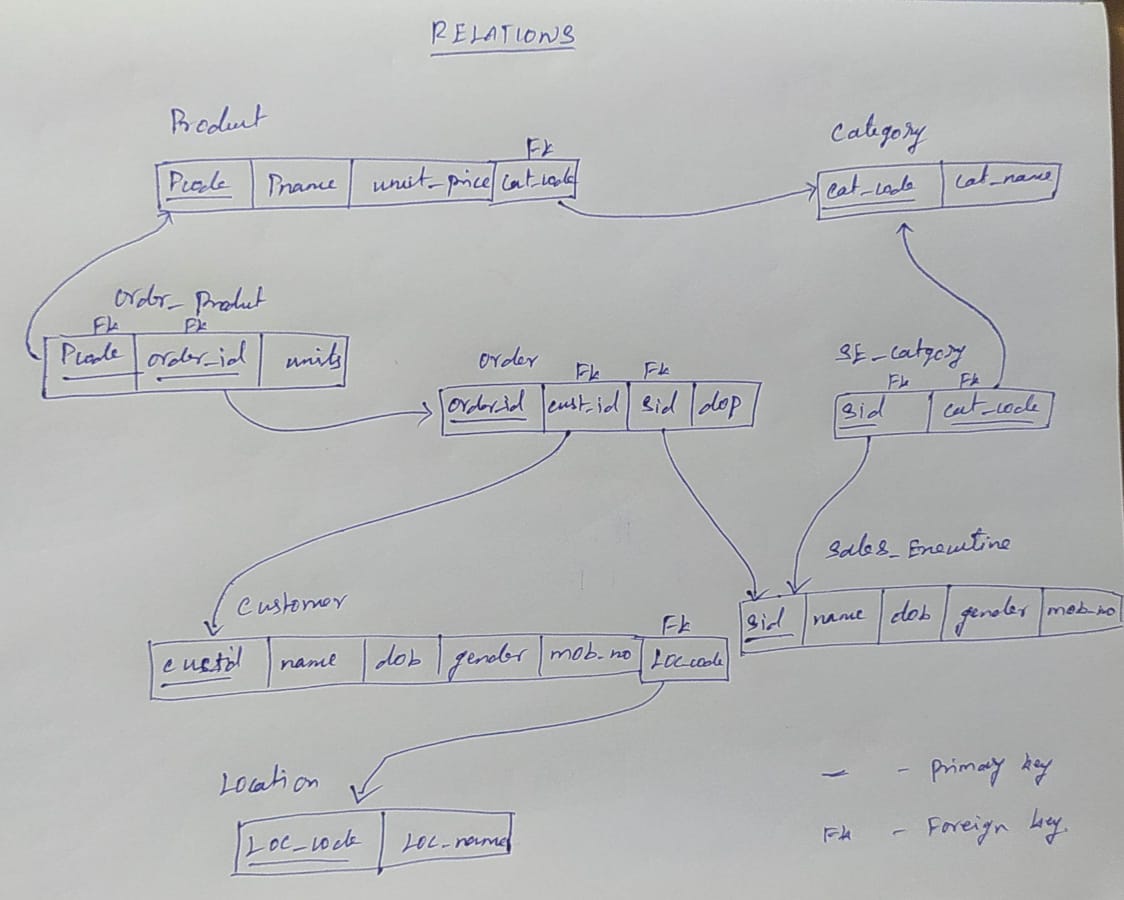 RELATIONS
Product
Fk
Pcode Pname unit_price Cat_code
Category
Cat_code Cat_name
Order_Product
Fk Fk
Pcode order_id units
Order
Fk Fk
order_id cust_id sid dop
SE_Catgory
Fk Fk
sid cat_code
Sales_Executive
sid name dob gender mob_no
Customer
Fk
custid name dob gender mob_no LOC_code
Location
LOC_code LOC_name
— - Primary key
Fk - Foreign key